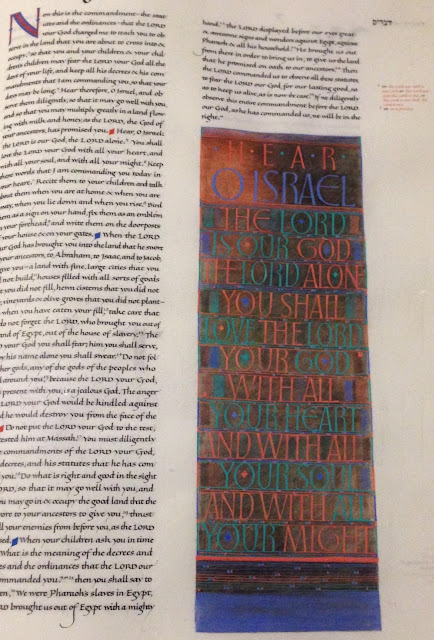 Now this is the commandment–the stat
utes and the ordinances–that the LORD
your God charged me to teach you to ob
serve in the land that you are about to cross into &
occupy, so that you and your children & your chil
drens children may fear the LORD your God all the
days of your life, and keep all his decrees & his com
mandments that I am commanding you, so that your
days may be long. Hear therefore, O Israel, and ob
serve them diligently, so that it may go well with you,
and so that you may multiply greatly in a land flow
ing with milk and honey, as the LORD, the God of
your ancestors, has promised you. Hear, O Israel:
The LORD is our God, the LORD alone. You shall
love the LORD your God with all your heart, and
with all your soul, and with all your might. Keep
these words that I am commanding you today in
your heart. Recite them to your children and talk
about them when you are at home & when you are
away, when you lie down and when you rise. Bind
them as a sign on your hand, fix them as an emblem
on your forehead, and write them on the doorposts
of your house & on your gates. When the LORD
your God has brought you into the land that he swore
your ancestors, to Abraham, to Isaac, and to Jacob,
give you–a land with fine, large cities that you
not build, houses filled with all sorts of goods
you did not fill, hewn cisterns that you did not
vineyards & olive groves that you did not plant–
when you have eaten your fill, take care that
do not forget the LORD, who brought you out of
land of Egypt, out of the house of slavery. The
your God you shall fear; him you shall serve,
by his name alone you shall swear. Do not fol
other gods, any of the gods of the peoples who
all around you, because the LORD your God,
present with you, is a jealous God. The anger
LORD your God would be kindled against
and he would destroy you from the face of the
Do not put the LORD your God to the test,
tested him at Massah. You must diligently
the commandments of the LORD your God,
decrees, and his statutes that he has com
you. Do what is right and good in the sight
LORD, so that it may go well with you, and
you may go in & occupy the good land that the
swore to your ancestors to give you, thrust
all your enemies from before you, as the LORD
When your children ask you in time
What is the meaning of the decrees and
and the ordinances that the LORD our
commanded you? then you shall say to
We were Pharaoh's slaves in Egypt,
LORD brought us out of Egypt with a mighty
hand. The LORD displayed before our eyes great
& awesome signs and wonders against Egypt, against
Pharaoh & all his household. He brought us out
from there in order to bring us in, to give us the land
that he promised on oath to our ancestors. Then
the LORD commanded us to observe all these statutes,
to fear the LORD our God, for our lasting good, so
as to keep us alive, as is now the case. If we diligently
observe this entire commandment before the LORD
our God, as he has commanded us, we will be in the
right."
דברים
HEAR
O ISRAEL
THE LORD
IS OUR GOD
THE LORD ALONE
YOU SHALL
LOVE THE LORD
YOUR GOD
WITH ALL
YOUR HEART
AND WITH ALL
YOUR SOUL
AND WITH ALL
YOUR MIGHT